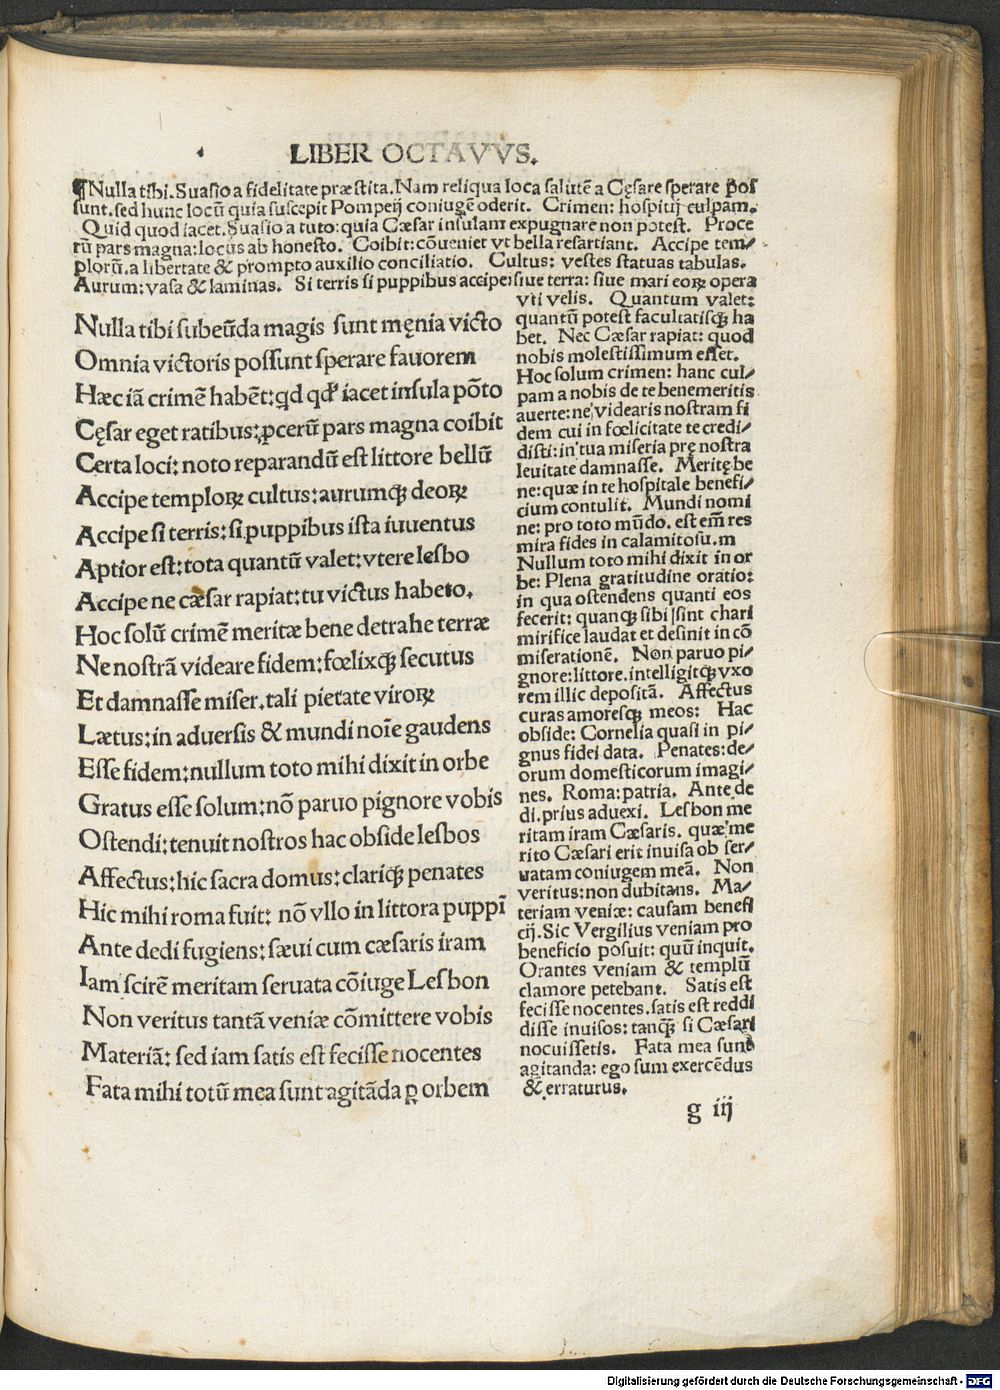 LIBER OCTAVVS.
¶Nulla tibi. Suasio a fidelitate præstita. Nam reliqua loca salutē a Cęsare sperare pos
sunt. sed hunc locū quia suscepit Pompeij coniugē oderit. Crimen: hospitij culpam.
Quid quod iacet. Suasio a tuto: quia Cæsar insulam expugnare non potest. Proce
rū pars magna: locus ab honesto. Coibit: cōueniet vt bella resartiant. Accipe tem⸗
plorū. a libertate & prompto auxilio conciliatio. Cultus: vestes statuas tabulas.
Aurum: vasa & laminas. Si terris si puppibus accipe: siue terra: siue mari eoꝝ opera
vti velis. Quantum valet:
quantū potest facultatisqȝ ha
bet. Nec Cæsar rapiat: quod
nobis molestissimum esset.
Hoc solum crimen: hanc cul⸗
pam a nobis de te benemeritis
auerte: ne videaris nostram fi
dem cui in fœlicitate te credi⸗
disti: in tua miseria prę nostra
leuitate damnasse. Meritę be
ne: quæ in te hospitale benefi⸗
cium contulit. Mundi nomi
ne: pro toto mūdo. est em̄ res
mira fides in calamitosu. m
Nullum toto mihi dixit in or
be: Plena gratitudine oratio:
in qua ostendens quanti eos
fecerit: quanqȝ sibi sint chari
mirifice laudat et desinit in cō
miserationē. Non paruo pi⸗
gnore: littore. intelligitqȝ vxo
rem illic depositā. Affectus
curas amoresqȝ meos: Hac
obside: Cornelia quasi in pi⸗
gnus fidei data. Penates: de⸗
orum domesticorum imagi⸗
nes. Roma: patria. Ante de
di. prius aduexi. Lesbon me
ritam iram Cæsaris. quæ me
rito Cæsari erit inuisa ob ser⸗
uatam coniugem meā. Non
veritus: non dubitans. Ma⸗
teriam veniæ: causam benefi
cij. Sic Vergilius veniam pro
beneficio posuit: quū inquit.
Orantes veniam & templū
clamore petebant. Satis est
fecisse nocentes. satis est reddi
disse inuisos: tanqȝ si Cæsari
nocuissetis. Fata mea sunt
agitanda: ego sum exercēdus
& erraturus.
Nulla tibi subeūda magis sunt męnia victo
Omnia victoris possunt sperare fauorem
Hæc iā crimē habēt: qd qd iacet insula pōto
Cęsar eget ratibus: ꝓcerū pars magna coibit
Certa loci: noto reparandū est littore bellū
Accipe temploꝝ cultus: aurumqȝ deoꝝ
Accipe si terris: si puppibus ista iuuentus
Aptior est: tota quantū valet: vtere lesbo
Accipe ne cæsar rapiat: tu victus habeto.
Hoc solū crimē meritæ bene detrahe terræ
Ne nostrā videare fidem: fœlixqȝ secutus
Et damnasse miser. tali pietate viroꝝ
Lætus: in aduersis & mundi noīe gaudens
Esse fidem: nullum toto mihi dixit in orbe
Gratus esse solum: nō paruo pignore vobis
Ostendi: tenuit nostros hac obside lesbos
Affectus: hic sacra domus: clariqȝ penates
Hic mihi roma fuit: nō vllo in littora puppī
Ante dedi fugiens: sæui cum cæsaris iram
Iam scirē meritam seruata cōiuge Lesbon
Non veritus tantā veniæ cōmittere vobis
Materiā: sed iam satis est fecisse nocentes
Fata mihi totū mea sunt agitāda ꝑ orbem
g iij
Digitalisierung gefördert durch die Deutsche Forschungsgemeinschaft - DFG